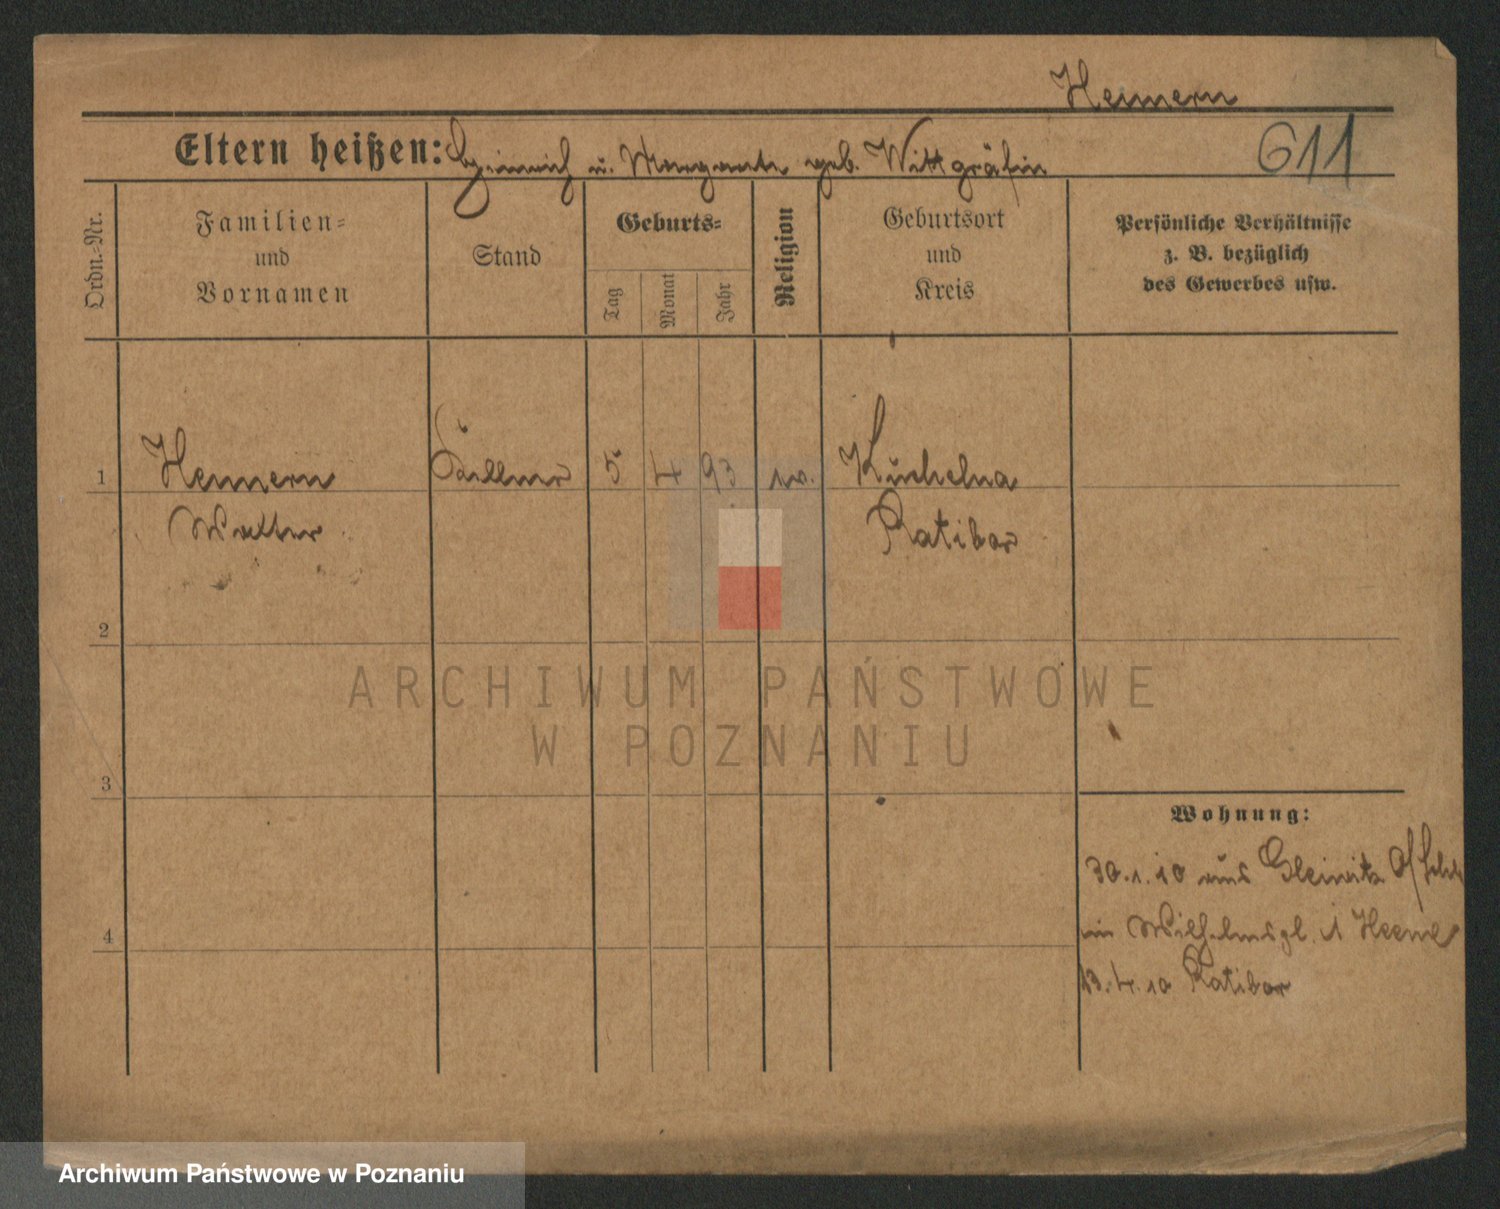 Hemern
Eltern heißen: Heinrich u. Margarete geb. Wittgräfin
611
Ordn.-Nr.
Familien-
und
Vornamen
Stand
Geburts-
Tag
Monat
Jahr
Religion
Geburtsort
und
Kreis
Persönliche Verhältnisse
z. B. bezüglich
des Gewerbes usw.
1
Hemern
Kellner
5
4
93
Kuchelna
Walter
Ratibor
2
3
4
Wohnung:
30.1.10 aus Gleiwitz
Wilhelmspl. 1
13.4.10 Ratibor
ARCHIWUM PAŃSTWOWE
W POZNANIU
Archiwum Państwowe w Poznaniu